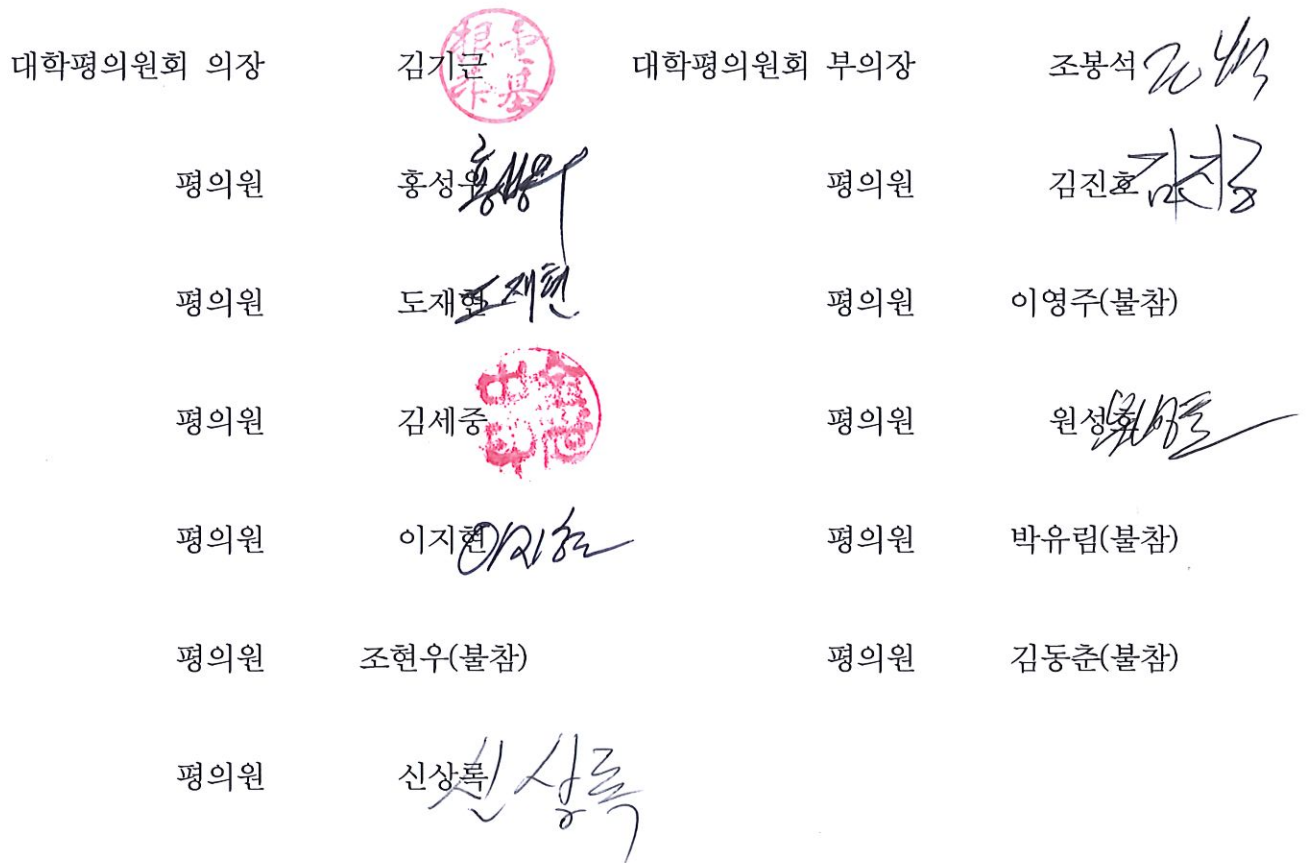 대학평의원회 의장 김기근 대학평의원회 부의장 조봉석
평의원 홍성우 평의원 김진호 김진호
평의원 도재현 도재현 평의원 이영주(불참)
평의원 김세중 평의원 원성호
평의원 이지현 이지현 평의원 박유림(불참)
평의원 조현우(불참) 평의원 김동춘(불참)
평의원 신상록 신상록